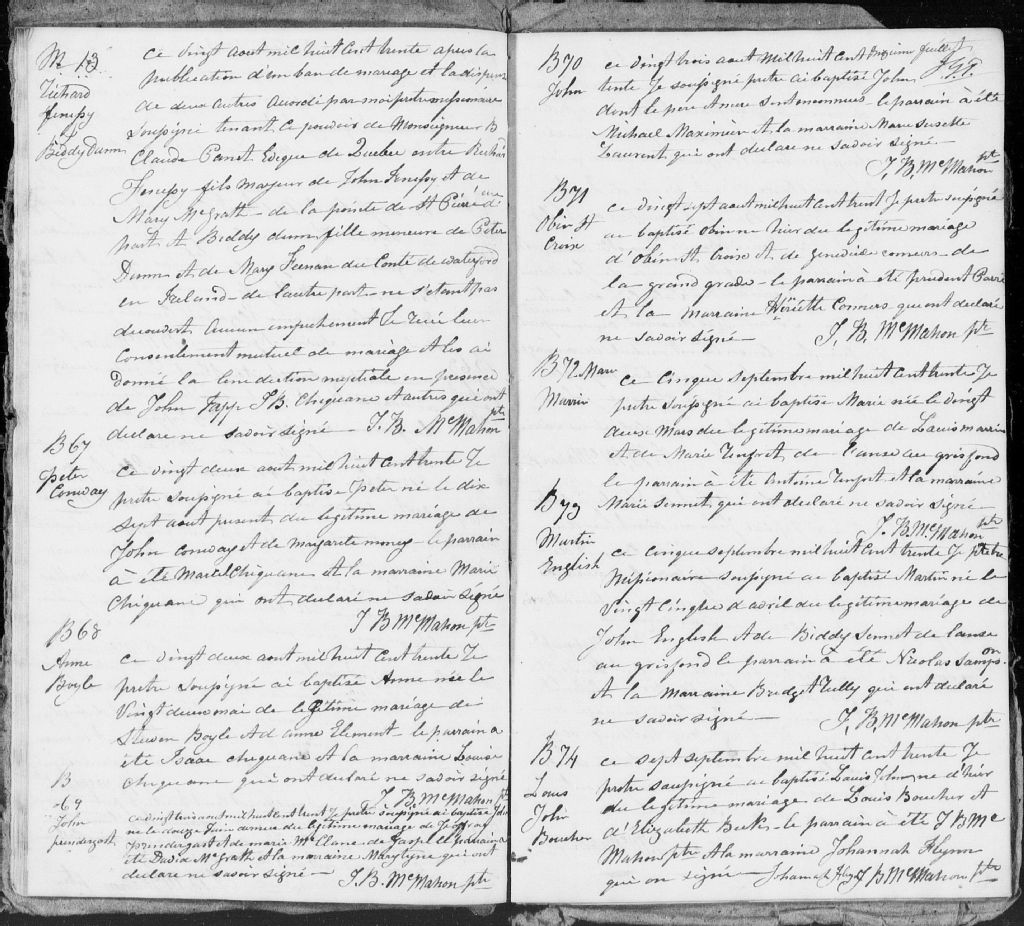 M. 13
Richard
fenessy
&
Biddy Dunn
ce vingt aout mil huit cent trente apres la
publication d'un ban de mariage et la dispense
de deux autres accordé par moi pretre missionaire
soussigné tenant le pouvoir de Monseigneur B
Claude Panet Eveque de Quebec entre Richard
Fenessy fils majeur de John Fenessy et de
Mary McGrath de la pointe de St Pierre d'une
part et Biddy dunn fille mineure de Peter
Dunn et de Mary Keenan du Conté de waterford
en Ireland de l'autre part ne s'etant pas
decouvert aucun empechement Je recu leur
Consentement mutuel de mariage et les ai
donné la benediction nuptiale en presence
de John Fapp J.B. Chiquane et autres qui ont
declare ne savoir signé — J. B. McMahon ptr
B 67
peter
Conway
ce vingt deux aout mil huit cent trente Je
pretre soussigné ai baptise Peter né le dix
sept aout present du legitime mariage de
John Conway et de Margarite le parrain
à été Martel Chiquane et la marraine Marie
Chiquane qui ont declaré ne savoir signé
J B McMahon ptr
B 68
Anne
Boyle
ce vingt deux aout mil huit cent trente Je
pretre soussigné ai baptisé Anne née le
Vingt deux mai de legitime mariage de
Steven Boyle et d'anne Element - le parrain a
été Isaac chiquane et la marraine Louise
chiquane qui ont declaré ne savoir signé
J B McMahon ptr
B
69
John
prendergast
ce vingt trois aout mil huit cent trent Je pretre soussigné ai baptise John
ne le douze Juin annee du legitime mariage de Jeoffray
Prendergast et de marie McClane de Gaspé le parrain a
été David McGrath et la marraine Mary Cyne qui ont
declare ne savoir signé —
J. B. McMahon ptr
B70
John
ce vingt trois aout Mil huit Cent
trente Je soussigné pretre ai baptisé John
dont le pere et mere sont inconnues le parrain à été
Michael Maximin et la marraine Marie Susette
Laurent qui ont declare ne savoir signé —
J. B. McMahon ptr
B71
Obin St
Croix
ce vingt sept aout mil huit cent trent Je pretre soussigné
ai baptisé Obin ne hier du legitime mariage
d'Obin St Croix et de genevieve comers de
la grand grave - le parrain à été prudent
et la marraine Heriette Conners qui ont declaré
ne savoir signé —
J. B. McMahon ptr
B72 Marie
Marrin
ce cinque septembre mil huit cent trente Je
pretre soussigné ai baptise Marie née le vingt
deux Mars du legitime mariage de Louis marrin
et de Marie de l'anse au grisfond
le parrain à été Antoine et la marraine
Marie Sennet qui ont declaré ne savoir signé
J. B. McMahon ptr
B73
Martin
English
ce cinque septembre mil huit cent trente Je pretre
Missionaire soussigné ai baptisé Martin né le
Vingt Cinque d'avril du legitime mariage de
John English et de Biddy Sennet de l'anse
au grisfond le parrain à été Nicolas Sampson
et la marraine Bridget Tully qui ont declaré
ne savoir signé —
J. B. McMahon ptr
B74
Louis
John
Boucher
ce sept septembre mil huit cent trente Je
pretre soussigné ai baptisé Louis John ne d'hier
du legitime mariage de Louis Boucher et
d'Elizabeth Beck - le parrain à été J B Mc
Mahon ptr et la marraine Johannah Flynn
qui on signé — J B McMahon ptr